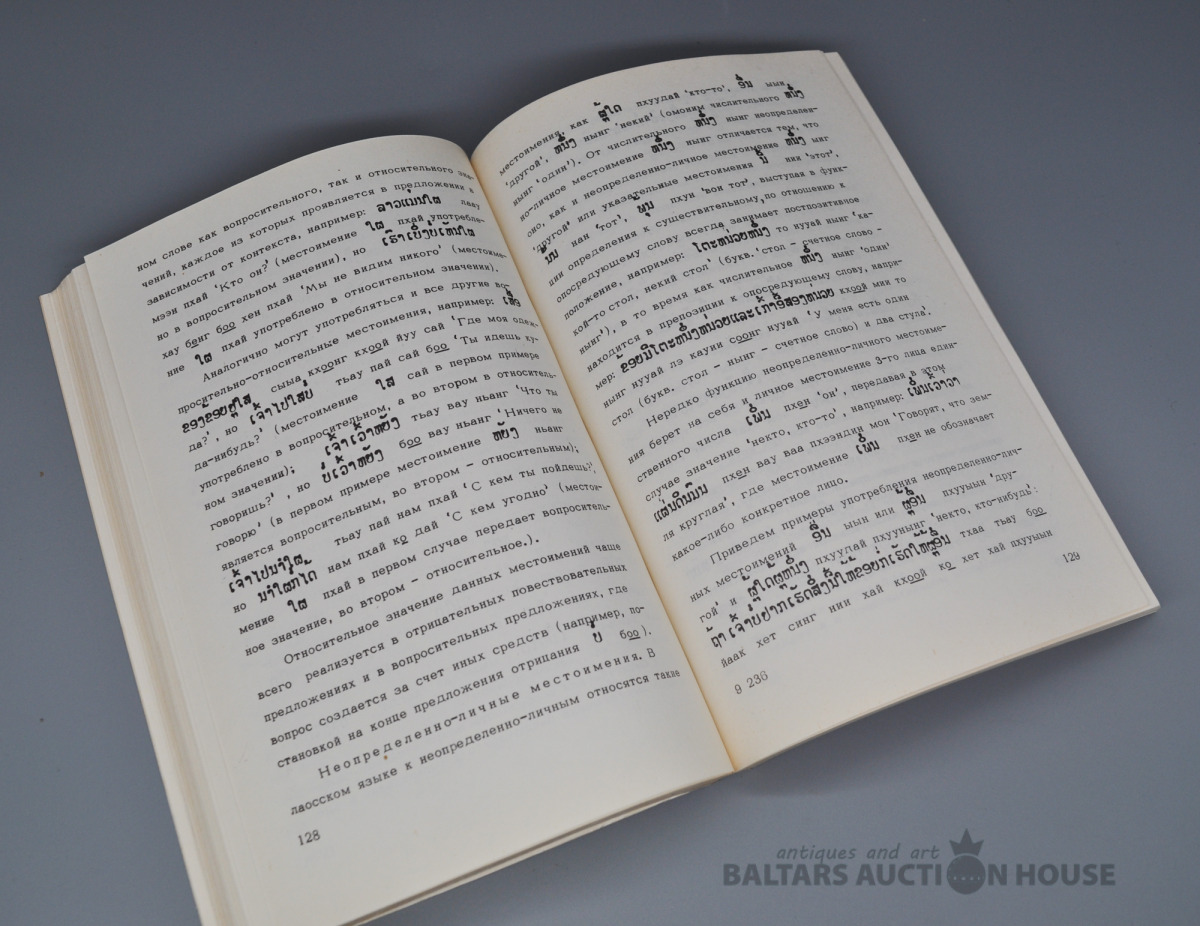 ном слове как вопросительного, так и относительного зна-
чений, каждое из которых проявляется в предложении в
зависимости от контекста, например: ລາວແມ່ນໃຜ лаау
мээн пхай 'Кто он?' (местоимение ໃຜ пхай употребле-
но в вопросительном значении), но ເຮົາເບິ່ງບໍ່ເຫັນໃຜ
хау бенг боо хен пхай 'Мы не видим никого' (местоиме-
ние ໃຜ пхай употреблено в относительном значении).
Аналогично могут употребляться и все другие во-
просительно-относительные местоимения, например: ເສື້ອ
ຂອງຂ້ອຍຢູ່ໃສ сыыа кхоонг кхоой йуу сай 'Где моя одеж-
да?', но ເຈົ້າໄປໃສບໍ່ тьау пай сай боо 'Ты идешь ку-
да-нибудь?' (местоимение ໃສ сай в первом примере
употреблено в вопросительном, а во втором в относитель-
ном значении); ເຈົ້າເວົ້າຫຍັງ тьау вау ньанг 'Что ты
говоришь?' , но ບໍ່ເວົ້າຫຍັງ боо вау ньанг 'Ничего не
говорю' (в первом примере местоимение ຫຍັງ ньанг
является вопросительным, во втором – относительным);
ເຈົ້າໄປນຳໃຜ тьау пай нам пхай 'С кем ты пойдешь?',
но ນຳໃຜກໍໄດ້ нам пхай ко дай 'С кем угодно' (местои-
мение ໃຜ пхай в первом случае передает вопроситель-
ное значение, во втором – относительное.).
Относительное значение данных местоимений чаще
всего реализуется в отрицательных повествовательных
предложениях и в вопросительных предложениях, где
вопрос создается за счет иных средств (например, по-
становкой на конце предложения отрицания ບໍ່ боо).
Неопределенно-личные местоимения. В
лаосском языке к неопределенно-личным относятся такие
128
местоимения, как ຜູ້ໃດ пхуудай 'кто-то', ອື່ນ ыын
'другой', ໜຶ່ງ нынг 'некий' (омоним числительного ໜຶ່ງ
нынг 'один'). От числительного ໜຶ່ງ нынг неопределен-
но-личное местоимение ໜຶ່ງ нынг отличается тем, что
оно, как и неопределенно-личное местоимение ໜຶ່ງ
'другой' или указательные местоимения ນີ້ нии 'этот',
ນັ້ນ нан 'тот', ພຸ້ນ пхун 'вон тот', выступая в функ-
ции определения к существительному, по отношению к
опосредующему слову всегда занимает постпозитивное
положение, например: ໂຕະໜ່ວຍໜຶ່ງ то нууй нынг 'ка-
кой-то стол, некий стол' (букв. 'стол – счетное слово –
нынг'), в то время как числительное ໜຶ່ງ нынг 'один'
находится в препозиции к опосредующему слову, напри-
мер: ຂ້ອຍມີໂຕະໜຶ່ງໜ່ວຍແລະເກົ້າອີ້ສອງໜ່ວຍ кхоой мии то
нынг нууй лэ кауии соонг нууй 'у меня есть один
стол (букв. стол – нынг – счетное слово) и два стула'.
Нередко функцию неопределенно-личного местоиме-
ния берет на себя и личное местоимение 3-го лица един-
ственного числа ເພິ່ນ пхен 'он', передавая в этом
случае значение 'некто, кто-то', например: ເພິ່ນເວົ້າວ່າ
ແຜ່ນດິນມົນ пхен вау ваа пхээндин мон 'Говорят, что зем-
ля круглая', где местоимение ເພິ່ນ пхен не обозначает
какое-либо конкретное лицо.
Приведем примеры употребления неопределенно-лич-
ных местоимений ອື່ນ ыын или ຜູ້ອື່ນ пхууыын 'дру-
гой' и ຜູ້ໃດຜູ້ໜຶ່ງ пхуудай пхуунынг 'некто, кто-нибудь':
ຖ້າເຈົ້າບໍ່ຢາກເຮັດສິ່ງນີ້ໃຫ້ຂ້ອຍກໍ່ເຮັດໃຫ້ຜູ້ອື່ນ тхаа тьау боо
йаак хет синг нии хай кхоой ко хет хай пхууыын
129
9 236
antiques and art
BALTARS AUCTION HOUSE